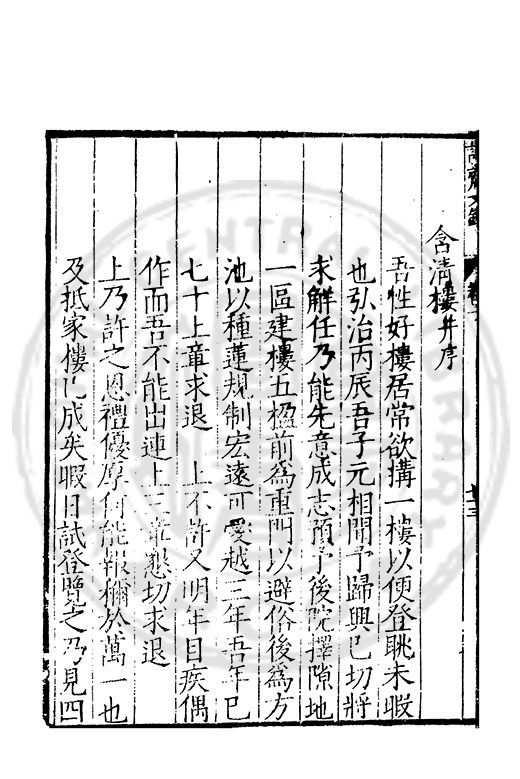 含清樓并序
吾性好樓居常欲搆一樓以便登眺未暇
也弘治丙辰吾子元相聞予歸興已切將
求解任乃能先意成志預予後院擇隙地
一區建樓五楹前為重門以避俗後為方
池以種蓮規制宏遠可愛越三年吾年已
七十上章求退　上不許又明年目疾偶
作而吾不能出連上三章懇切求退
上乃許之恩禮優厚何能報稱於萬一也
及抵家樓已成矣暇日試登覽之乃見四